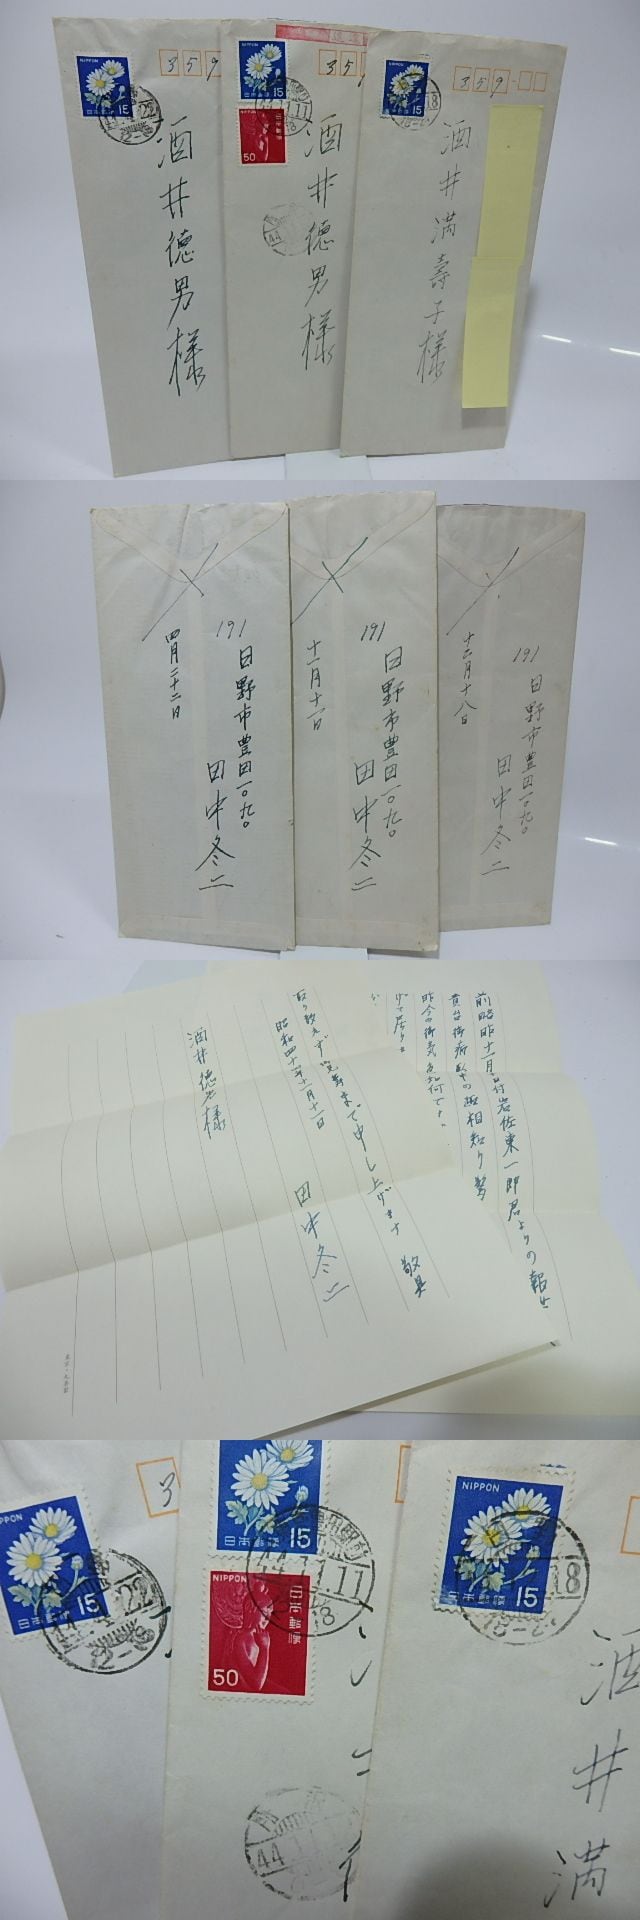 NIPPON
15
日本郵便
359
酒井徳男様
NIPPON
15
日本郵便
NIPPON
50
44.11.11
359
酒井徳男様
15
359-
酒井満壽子様
191
日野市豊田一〇九〇
田中冬二
四月二十二日
191
日野市豊田一〇九〇
田中冬二
十一月十一日
191
日野市豊田一〇九〇
田中冬二
十二月十八日
前略 昨十一月 日付岩佐東一郎君よりの報せ
貴台御病臥の趣相知り
昨今の御気色如何です
取り敢えず 御見舞まで申し上げます 敬具
昭和四十四年十一月十一日
田中冬二
酒井徳男様
NIPPON
15
日本郵便
3
NIPPON
15
日本郵便
44.11.11
NIPPON
50
日本郵便
44
NIPPON
15
日本郵便
18
酒井満